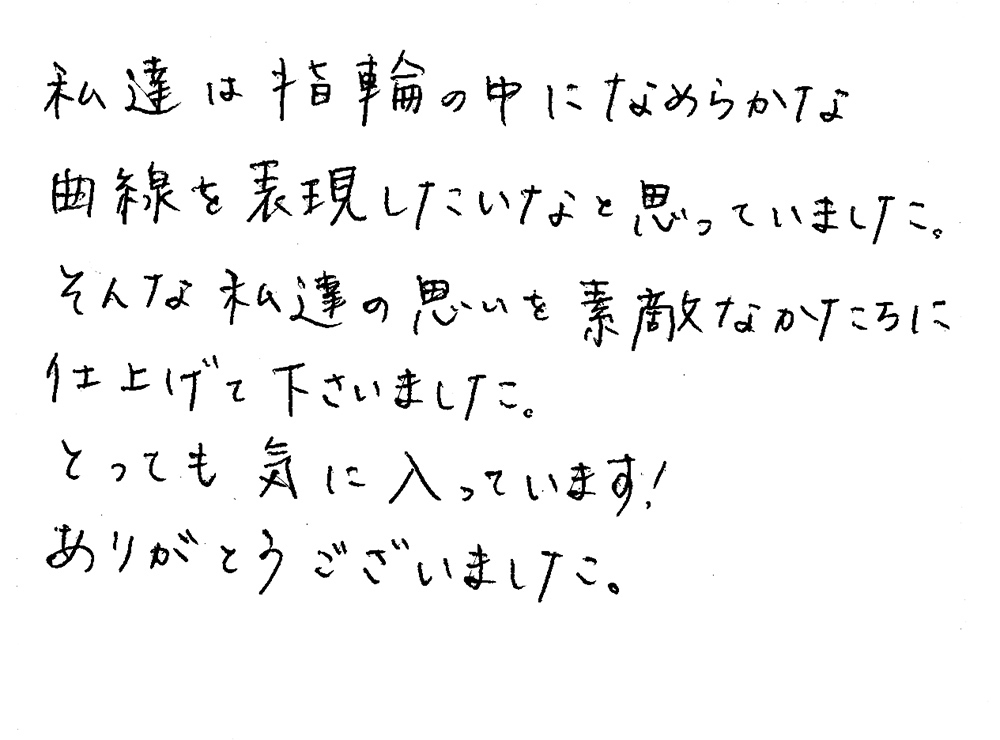 私達は指輪の中になめらかな
曲線を表現したいなと思っていました。
そんな私達の思いを素敵なかたちに
仕上げて下さいました。
とっても気に入っています!
ありがとうございました。